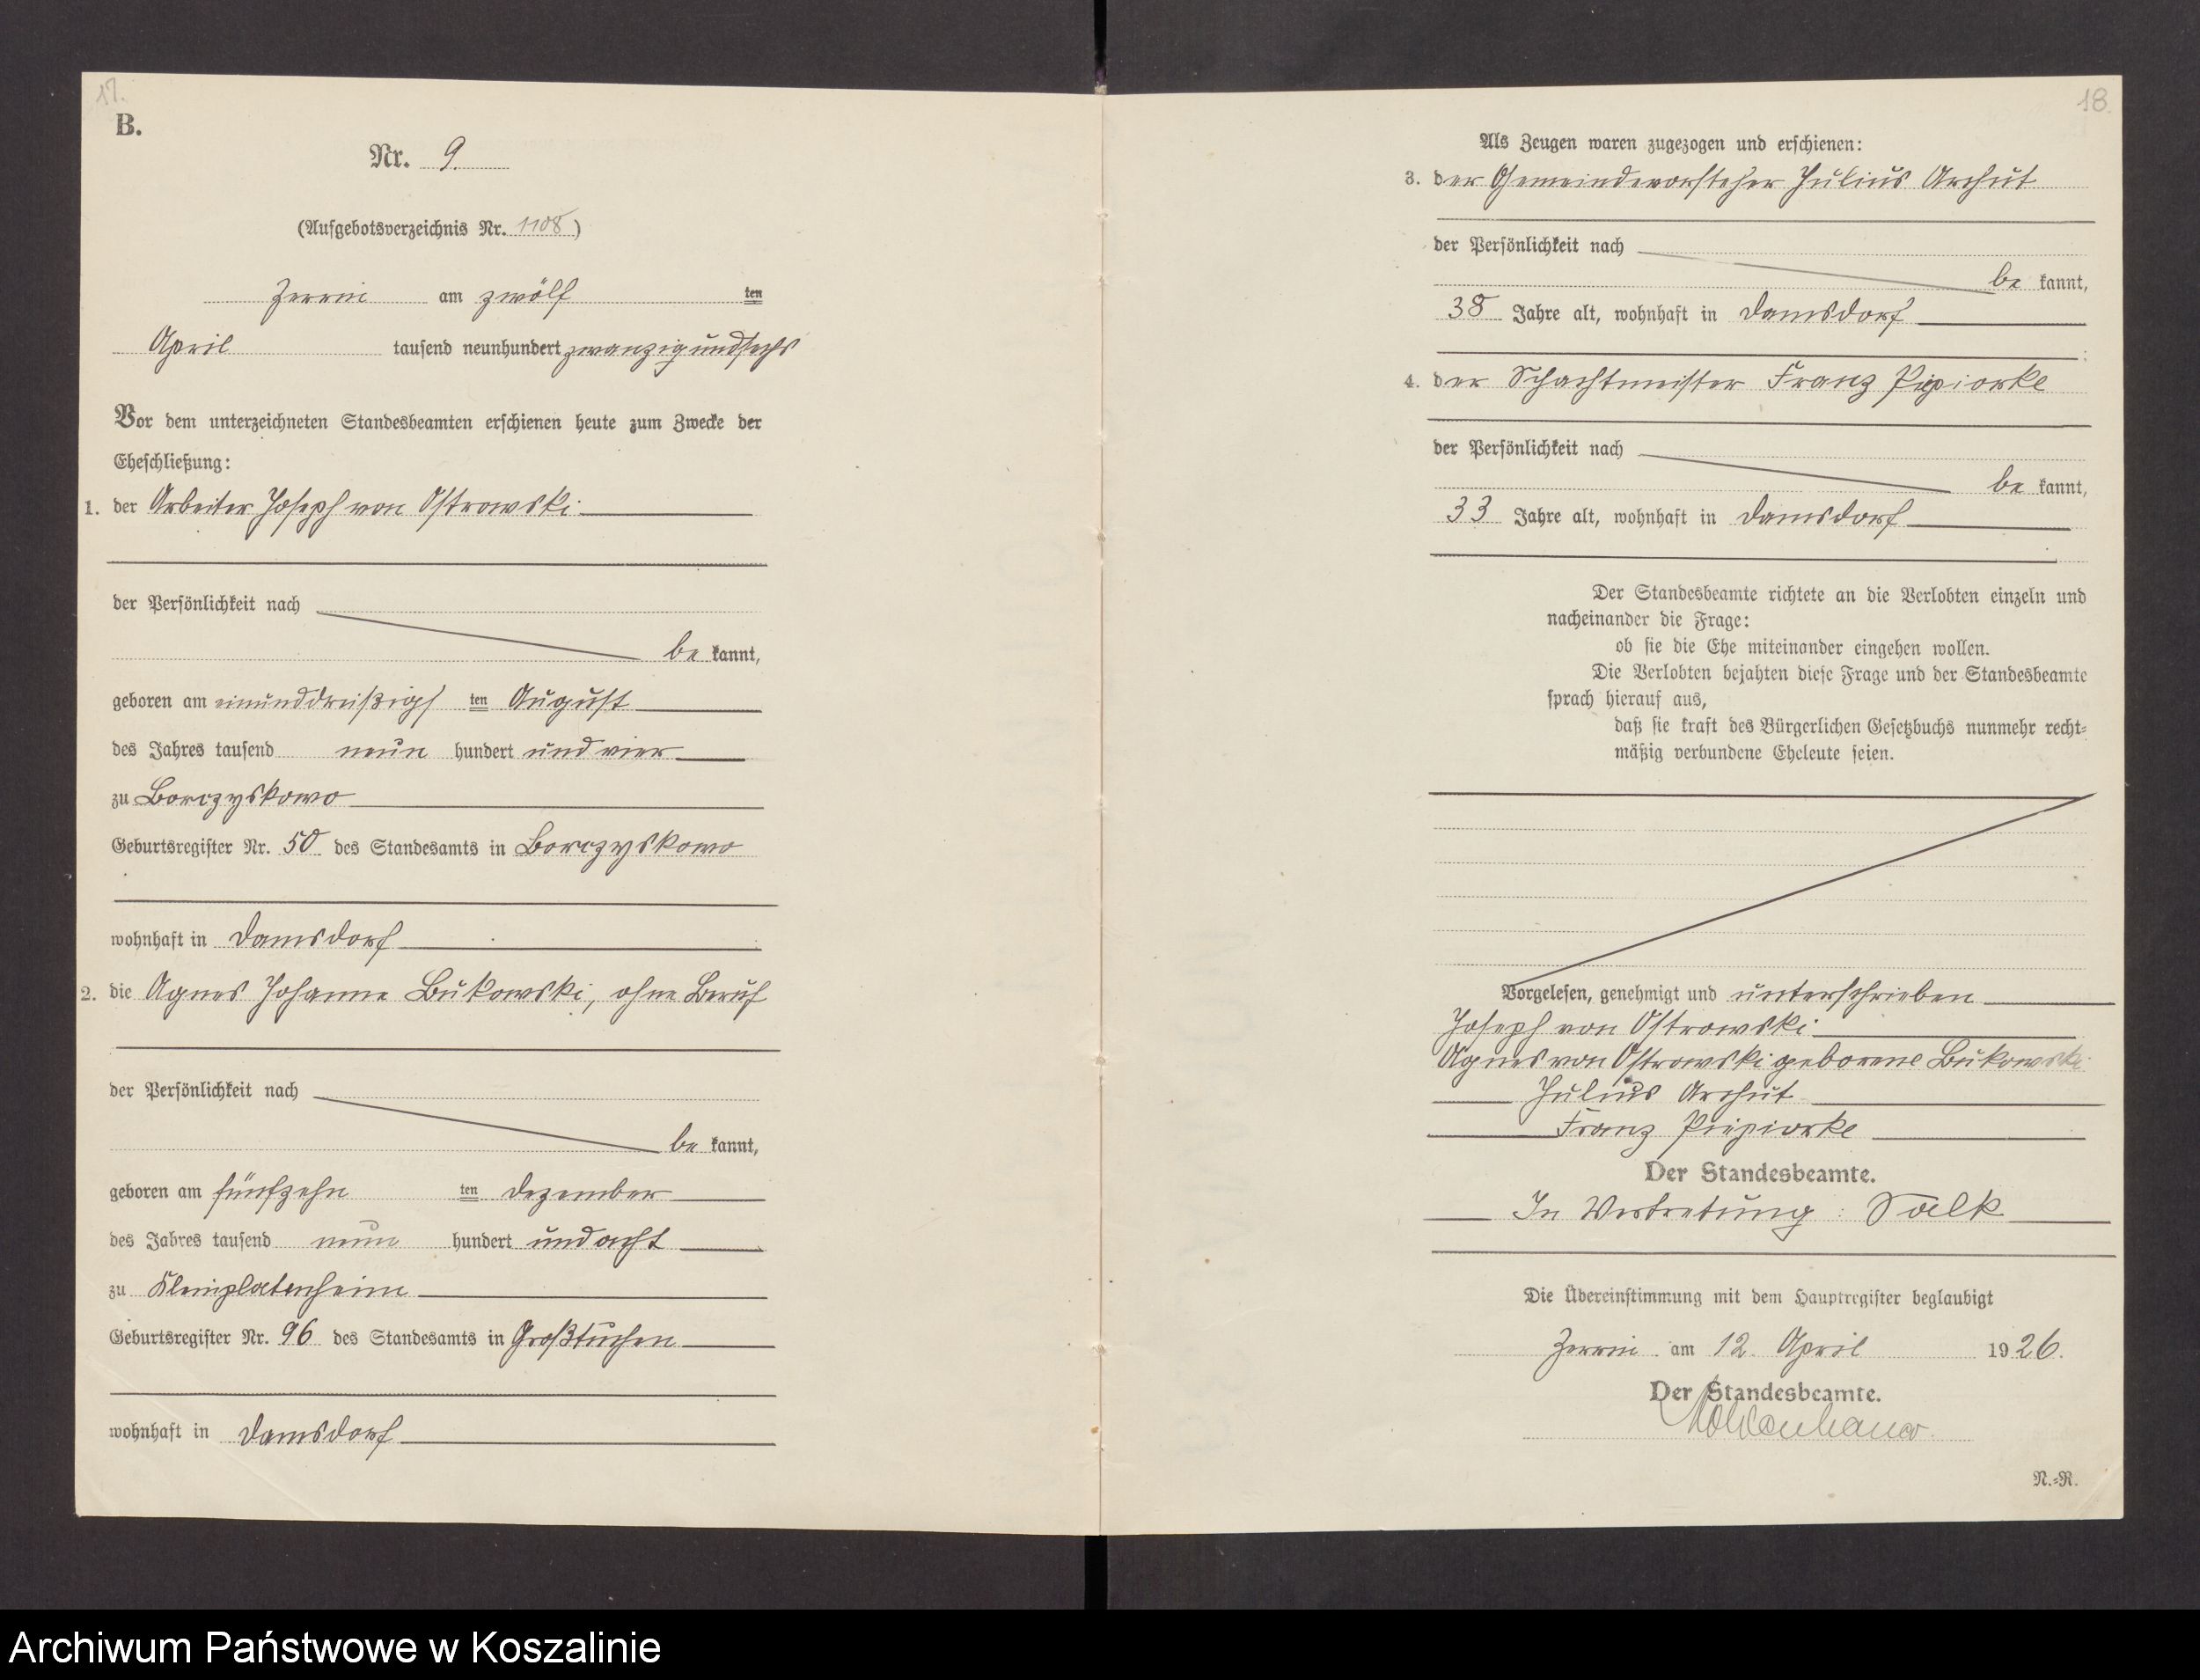 17.
B.
Nr. 9.
(Aufgebotsverzeichnis Nr. 1108)
Zerrin am zwölf ten
April tausend neunhundert zwanzig und sechs
Vor dem unterzeichneten Standesbeamten erschienen heute zum Zwecke der
Eheschließung:
1. der Arbeiter Joseph von Ostrowski
der Persönlichkeit nach
be kannt,
geboren am einunddreißigs ten August
des Jahres tausend neun hundert und vier
zu Borczyskowo
Geburtsregister Nr. 50 des Standesamts in Borczyskowo
wohnhaft in Damsdorf
2. die Agnes Johanna Bukowski, ohne Beruf
der Persönlichkeit nach
be kannt,
geboren am fünfzehn ten Dezember
des Jahres tausend neun hundert und acht
zu Kleinplatenheim
Geburtsregister Nr. 96 des Standesamts in Großtuchen
wohnhaft in Damsdorf
18.
Als Zeugen waren zugezogen und erschienen:
3. der Gemeindevorsteher Julius Archut
der Persönlichkeit nach
be kannt,
38 Jahre alt, wohnhaft in Damsdorf
;
4. der Schachtmeister Franz Piepiorke
der Persönlichkeit nach
be kannt,
33 Jahre alt, wohnhaft in Damsdorf
Der Standesbeamte richtete an die Verlobten einzeln und
nacheinander die Frage:
ob sie die Ehe miteinander eingehen wollen.
Die Verlobten bejahten diese Frage und der Standesbeamte
sprach hierauf aus,
daß sie kraft des Bürgerlichen Gesetzbuchs nunmehr recht-
mäßig verbundene Eheleute seien.
Vorgelesen, genehmigt und unterschrieben
Joseph von Ostrowski
Agnes von Ostrowski geborene Bukowski
Julius Archut
Franz Piepiorke
Der Standesbeamte.
In Vertretung: Salk
Die Übereinstimmung mit dem Hauptregister beglaubigt
Zerrin am 12. April 1926.
Der Standesbeamte.
N.=R.
Archiwum Państwowe w Koszalinie